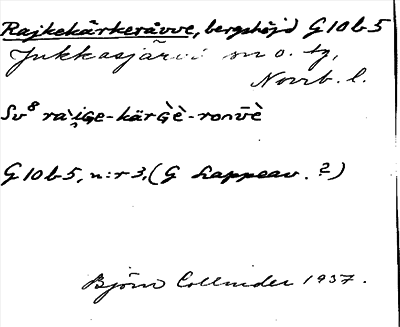 Rajkekärkeråvve, bergshöjd G10b5
Jukkasjärvi sn o. tg,
Norrb. l.
Sv⁸ ràịGe-kärG̀è-ronv̄è
G10b5, n:r 3, (G Lappeav. ?)
Björn Collinder 1957.